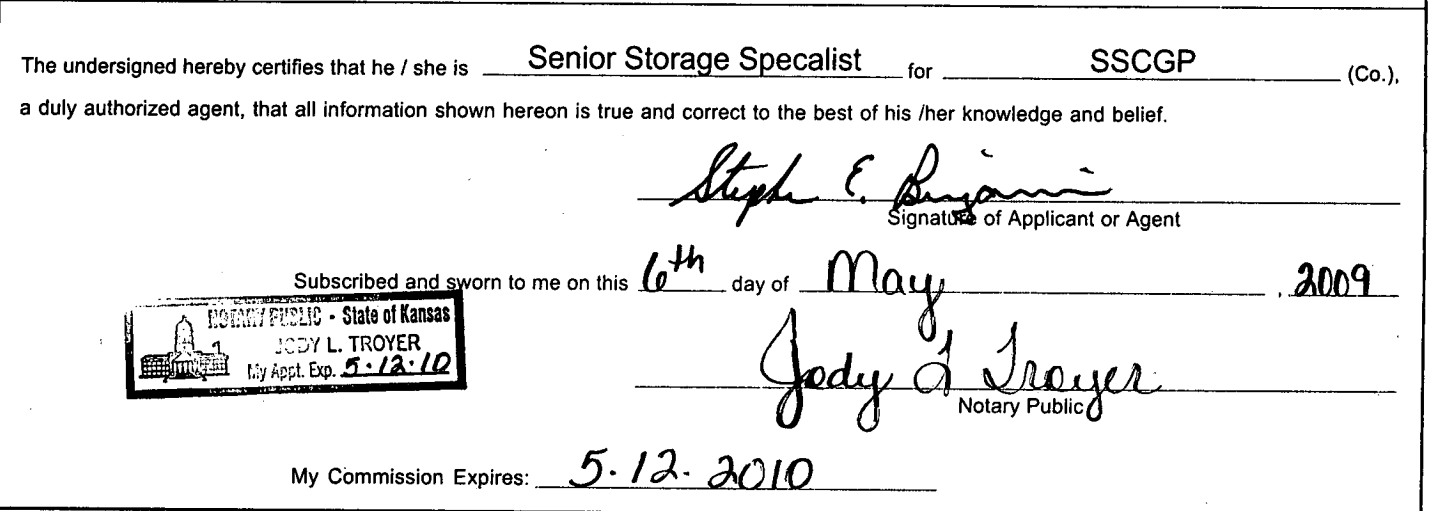 The undersigned hereby certifies that he / she is Senior Storage Specalist for SSCGP (Co.),
a duly authorized agent, that all information shown hereon is true and correct to the best of his /her knowledge and belief.
Stephen E. Benjamin
Signature of Applicant or Agent
Subscribed and sworn to me on this 6th day of May, 2009
NOTARY PUBLIC - State of Kansas
JODY L. TROYER
My Appt. Exp. 5-12-10
Jody L Troyer
Notary Public
My Commission Expires: 5-12-2010